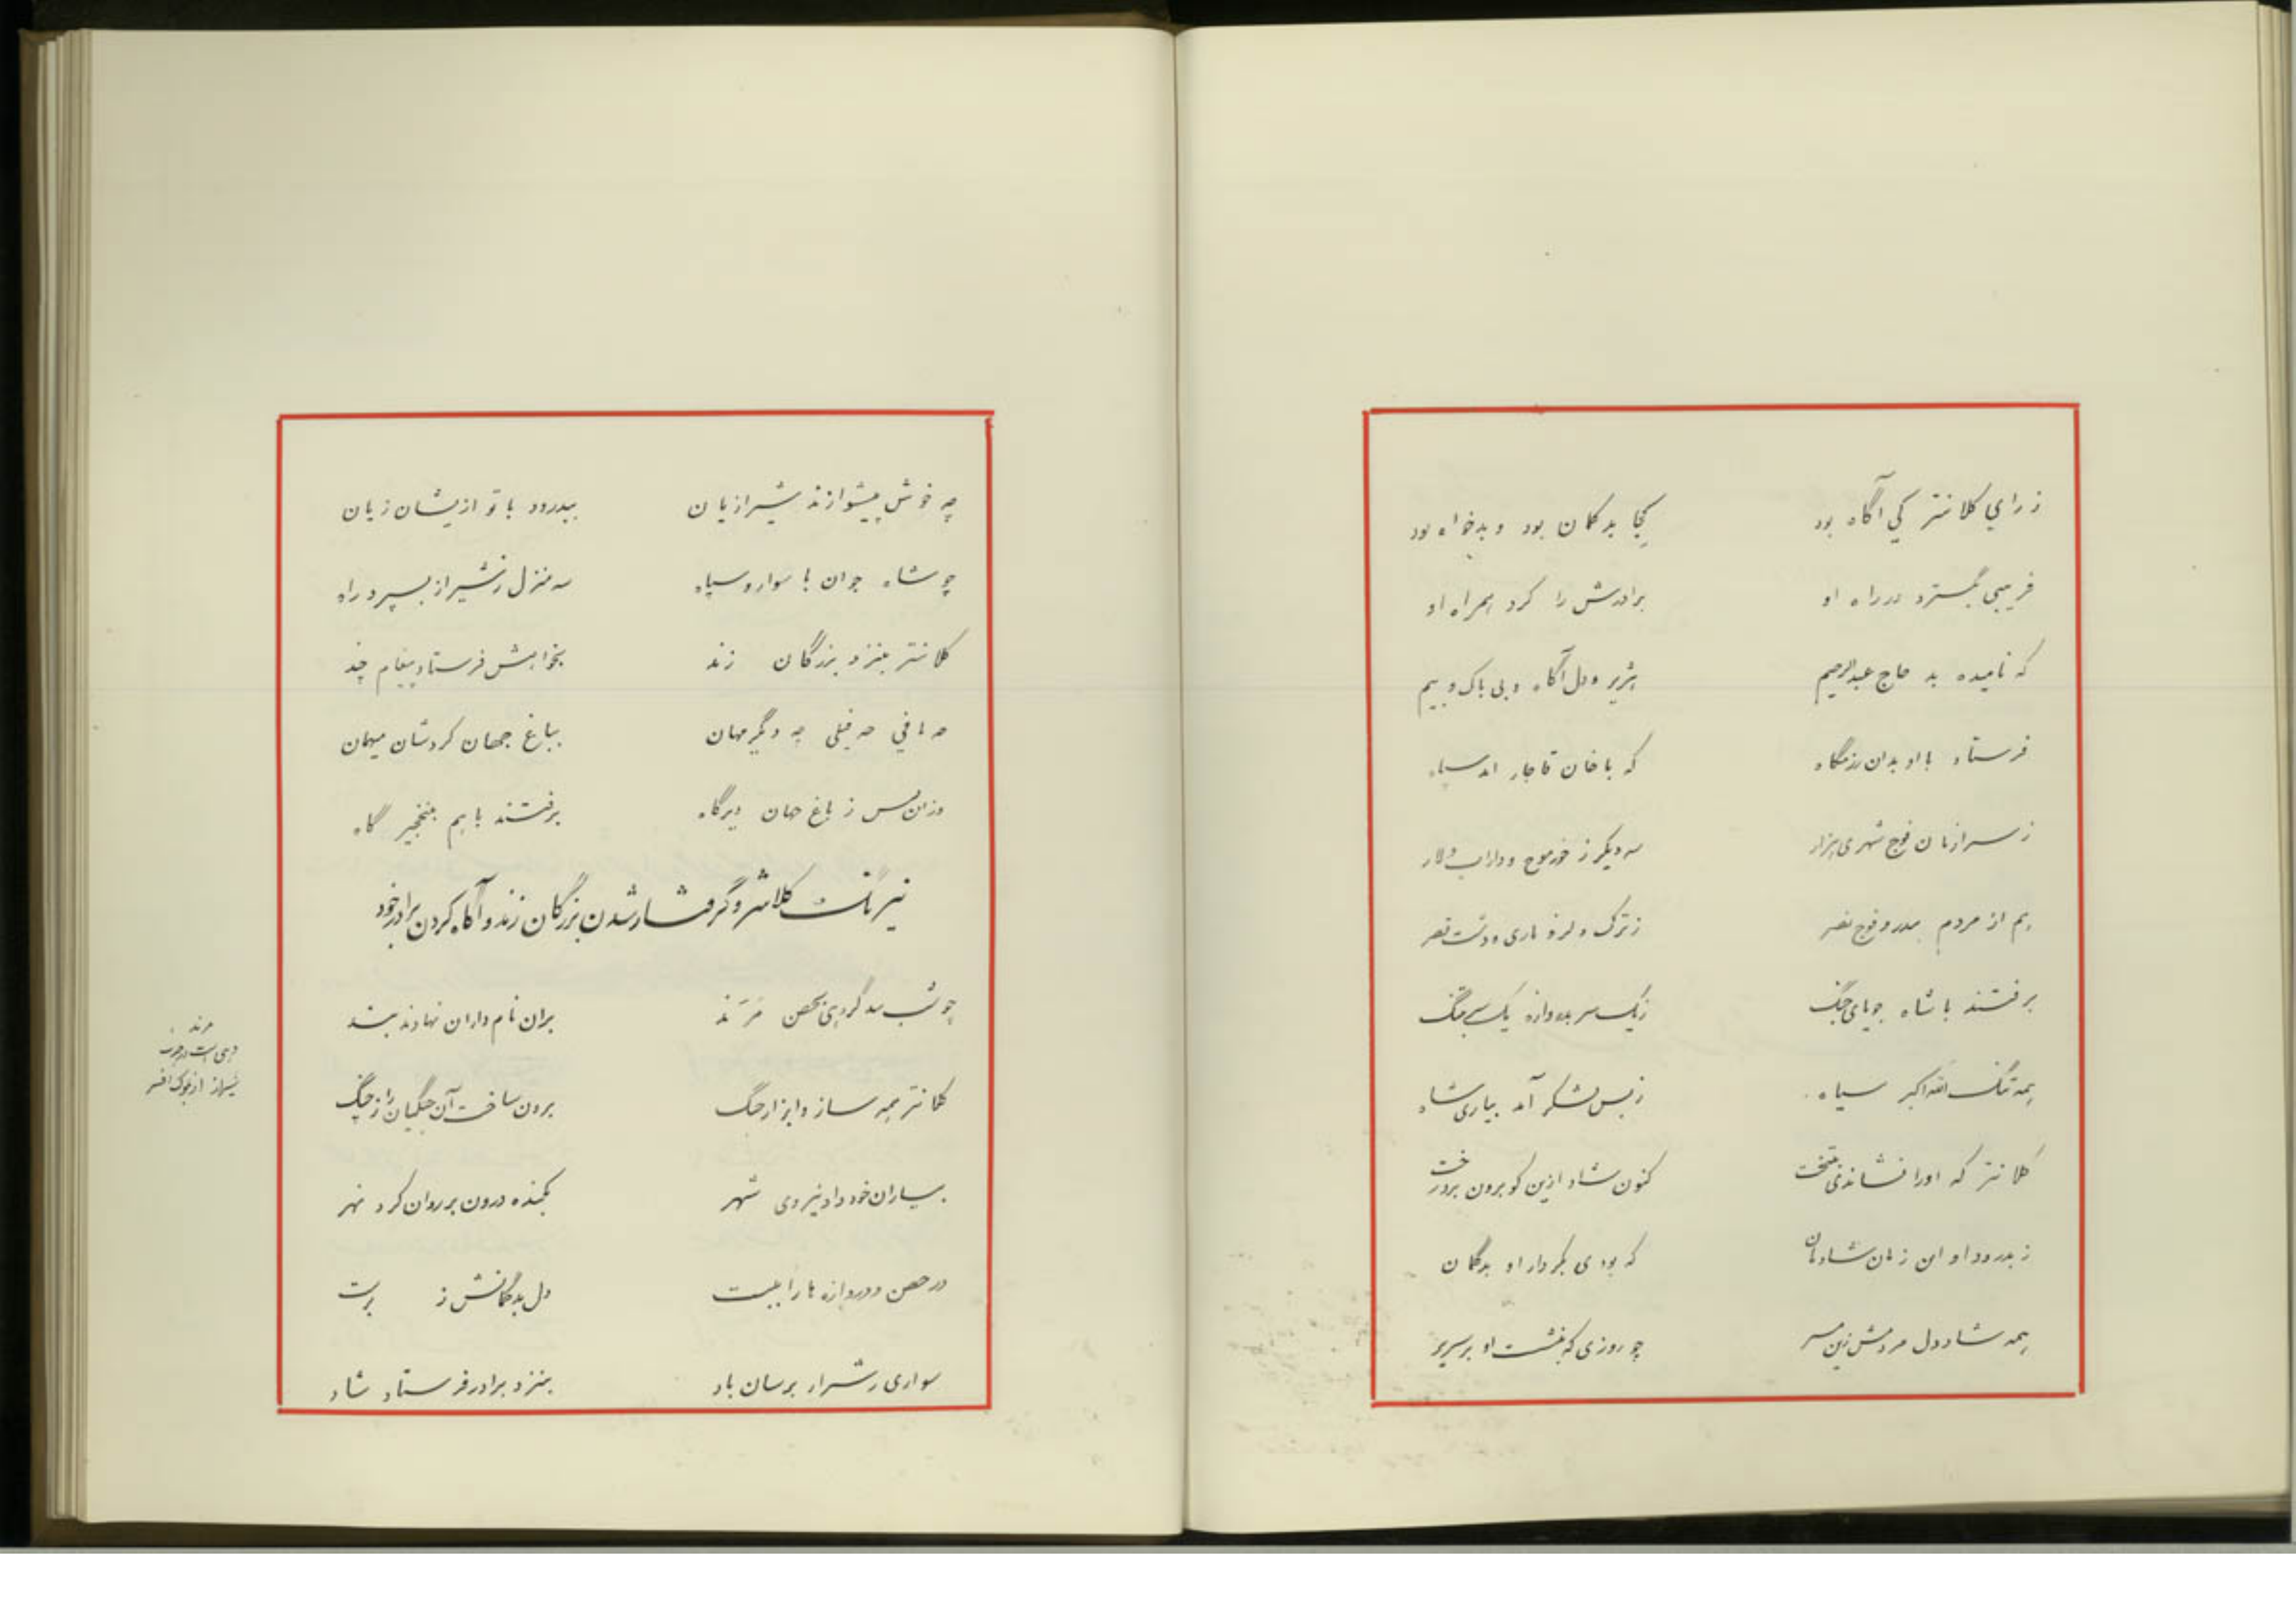 ز رای کلانتر کی آگاه بود کجا بدگمان بود و بدخواه بود
فریبی بگسترد در راه او برادرش را کرد همراه او
که نامیده بد حاج عبدالرحیم هژیر و دل آگاه و بی باک و بیم
فرستاد با او بدان رزمگاه که با خان قاجار اند سپاه
ز فوج شهری هزار سه دیگر ز خورموج و داراب و لار
هم از مردم و فوج نصر ز ترک و لر و
برفتند با شاه جویای جنگ ز یک سر بدروازه یک سر بتنگ
همه تنگ الله اکبر سپاه ز پس لشکر آمد بیاری شاه
کلانتر که او را نشاندی بتخت کنون شاد ازین کو برون برد رخت
ز بدرود او این زمان شادمان که بودی بکردار او بدگمان
همه شاددل مردمش زین مسیر چو روزی که بنشست او بر سریر
چه خوش پیشوازند شیرازیان ببدرود با تو ازیشان زیان
چو شاه جوان با سوار و سپاه سه منزل ز شیراز بسپرد راه
کلانتر بنزد بزرگان زند بخواهش فرستاد پیغام چند
چه چه دیگر مهان بباغ جهان کردشان میهمان
وزان پس ز باغ جهان دیرگاه برفتند با هم بنخجیر گاه
نیرنگ کلانتر و گرفتار شدن بزرگان زند و آگاه کردن برادر خود
چو شب شد بحصن مرند بران نام داران نهادند بند
کلانتر همه ساز و ابزار جنگ برون ساخت آن جنگیان را ز چنگ
بیاران خود داد نیروی شهر بکنده درون بر روان کرد نهر
در حصن و دروازه ها را ببست دل بدگمانش ز برست
سواری ز شیراز برسان باد بنزد برادر فرستاد شاد
مرند
دهی است در غرب
شیراز از بلوک